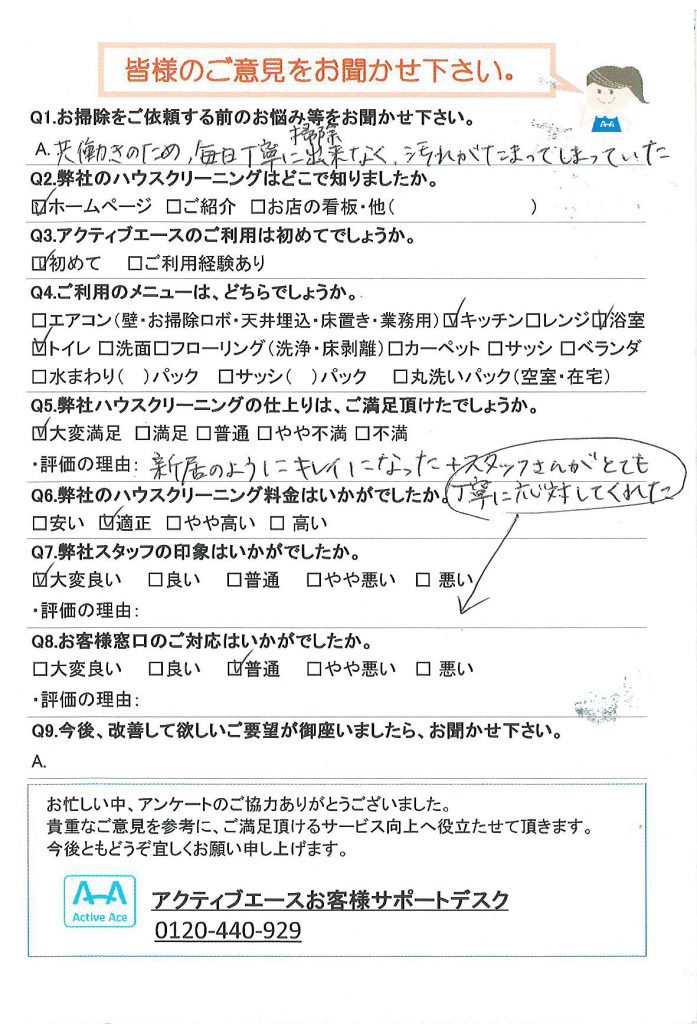 皆様のご意見をお聞かせ下さい。
Q1.お掃除をご依頼する前のお悩み等をお聞かせ下さい。
A.共働きのため,毎日丁寧に掃除出来なく,汚れがたまってしまっていた
Q2.弊社のハウスクリーニングはどこで知りましたか。
☑ホームページ □ご紹介 □お店の看板・他( )
Q3.アクティブエースのご利用は初めてでしょうか。
☑初めて □ご利用経験あり
Q4.ご利用のメニューは、どちらでしょうか。
□エアコン(壁・お掃除ロボ・天井埋込・床置き・業務用)☑キッチン□レンジ☑浴室
☑トイレ □洗面□フローリング(洗浄・床剥離)□カーペット □サッシ □ベランダ
□水まわり( )パック □サッシ( )パック □丸洗いパック(空室・在宅)
Q5.弊社ハウスクリーニングの仕上りは、ご満足頂けたでしょうか。
☑大変満足 □満足 □普通 □やや不満 □不満
・評価の理由: 新居のようにキレイになった+スタッフさんがとても
丁寧に応対してくれた
Q6.弊社のハウスクリーニング料金はいかがでしたか。
□安い ☑適正 □やや高い □ 高い
Q7.弊社スタッフの印象はいかがでしたか。
☑大変良い □良い □普通 □やや悪い □ 悪い
・評価の理由:
Q8.お客様窓口のご対応はいかがでしたか。
□大変良い □良い ☑普通 □やや悪い □ 悪い
・評価の理由:
Q9.今後、改善して欲しいご要望が御座いましたら、お聞かせ下さい。
A.
お忙しい中、アンケートのご協力ありがとうございました。
貴重なご意見を参考に、ご満足頂けるサービス向上へ役立たせて頂きます。
今後ともどうぞ宜しくお願い申し上げます。
Active Ace
アクティブエースお客様サポートデスク
0120-440-929